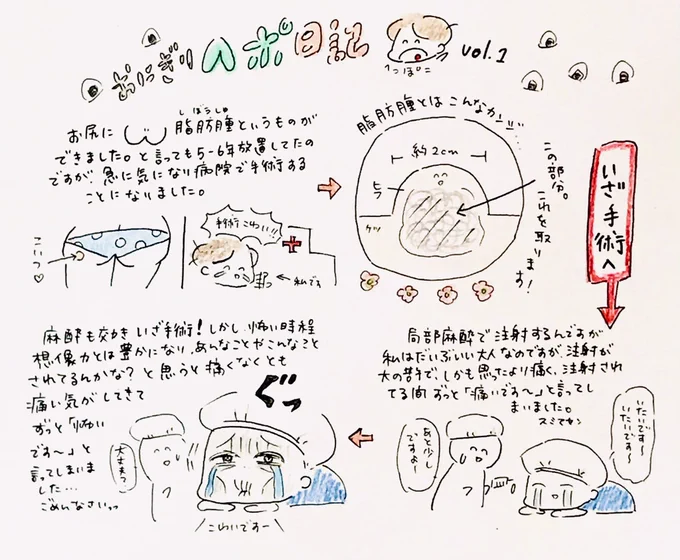 おにぎりヘポ日記 vol.1
へっぽこ
お尻に 脂肪腫というものが
しぼうしゅ
できました。と言っても5-6年放置してたの
ですが、急に気になり病院で手術する
ことになりました。
こいつ♡
手術こわい!!
私です
脂肪腫とはこんなかんじ!!!
約2cm
ヒフ
ケツ
この部分。
これを取ります!
いざ手術へ
局部麻酔で注射するんですが
私はだいぶいい大人なのですが、注射が
大の苦手で、しかも思ったより痛く、注射され
てる間ずっと「痛いです〜」と言ってし
まいました。
スミマセン
いたいです〜
いたいです〜
あと少し
ですよ〜
麻酔も効きいざ手術!しかし、怖い時程
想像力とは豊かになり、あんなことやこんなこと
されてるんかな?と思うと痛くなくとも
痛い気がしてきて
ずっと「怖い
です〜」と
言ってしまいま
した…
ごめんなさいっっ
ぐっ
大丈夫?
こわいですー